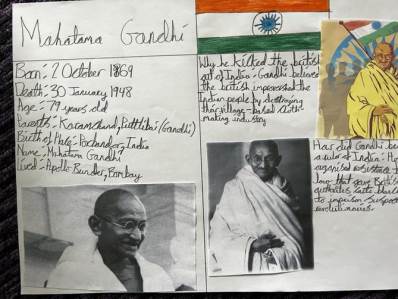 Mahatama Gandhi
Born: 2 October 1869
Death: 30 January 1948
Age: 79 years old
Parents: Karamchand, Putlibai (Gandhi)
Birth of Plate: Porbandar, India
Name: Mahatam Gandhi
Lived: Apollo Bunder, Bombay
Why he kicked the british
out of India: Gandhi believed
the british impoverished the
Indian people by destroying
their village-based cloth-
making industry
Has did Gandhi
rule of India:
organised resistance
law that gave British
authorities
to imprison suspect
revolutionaries.